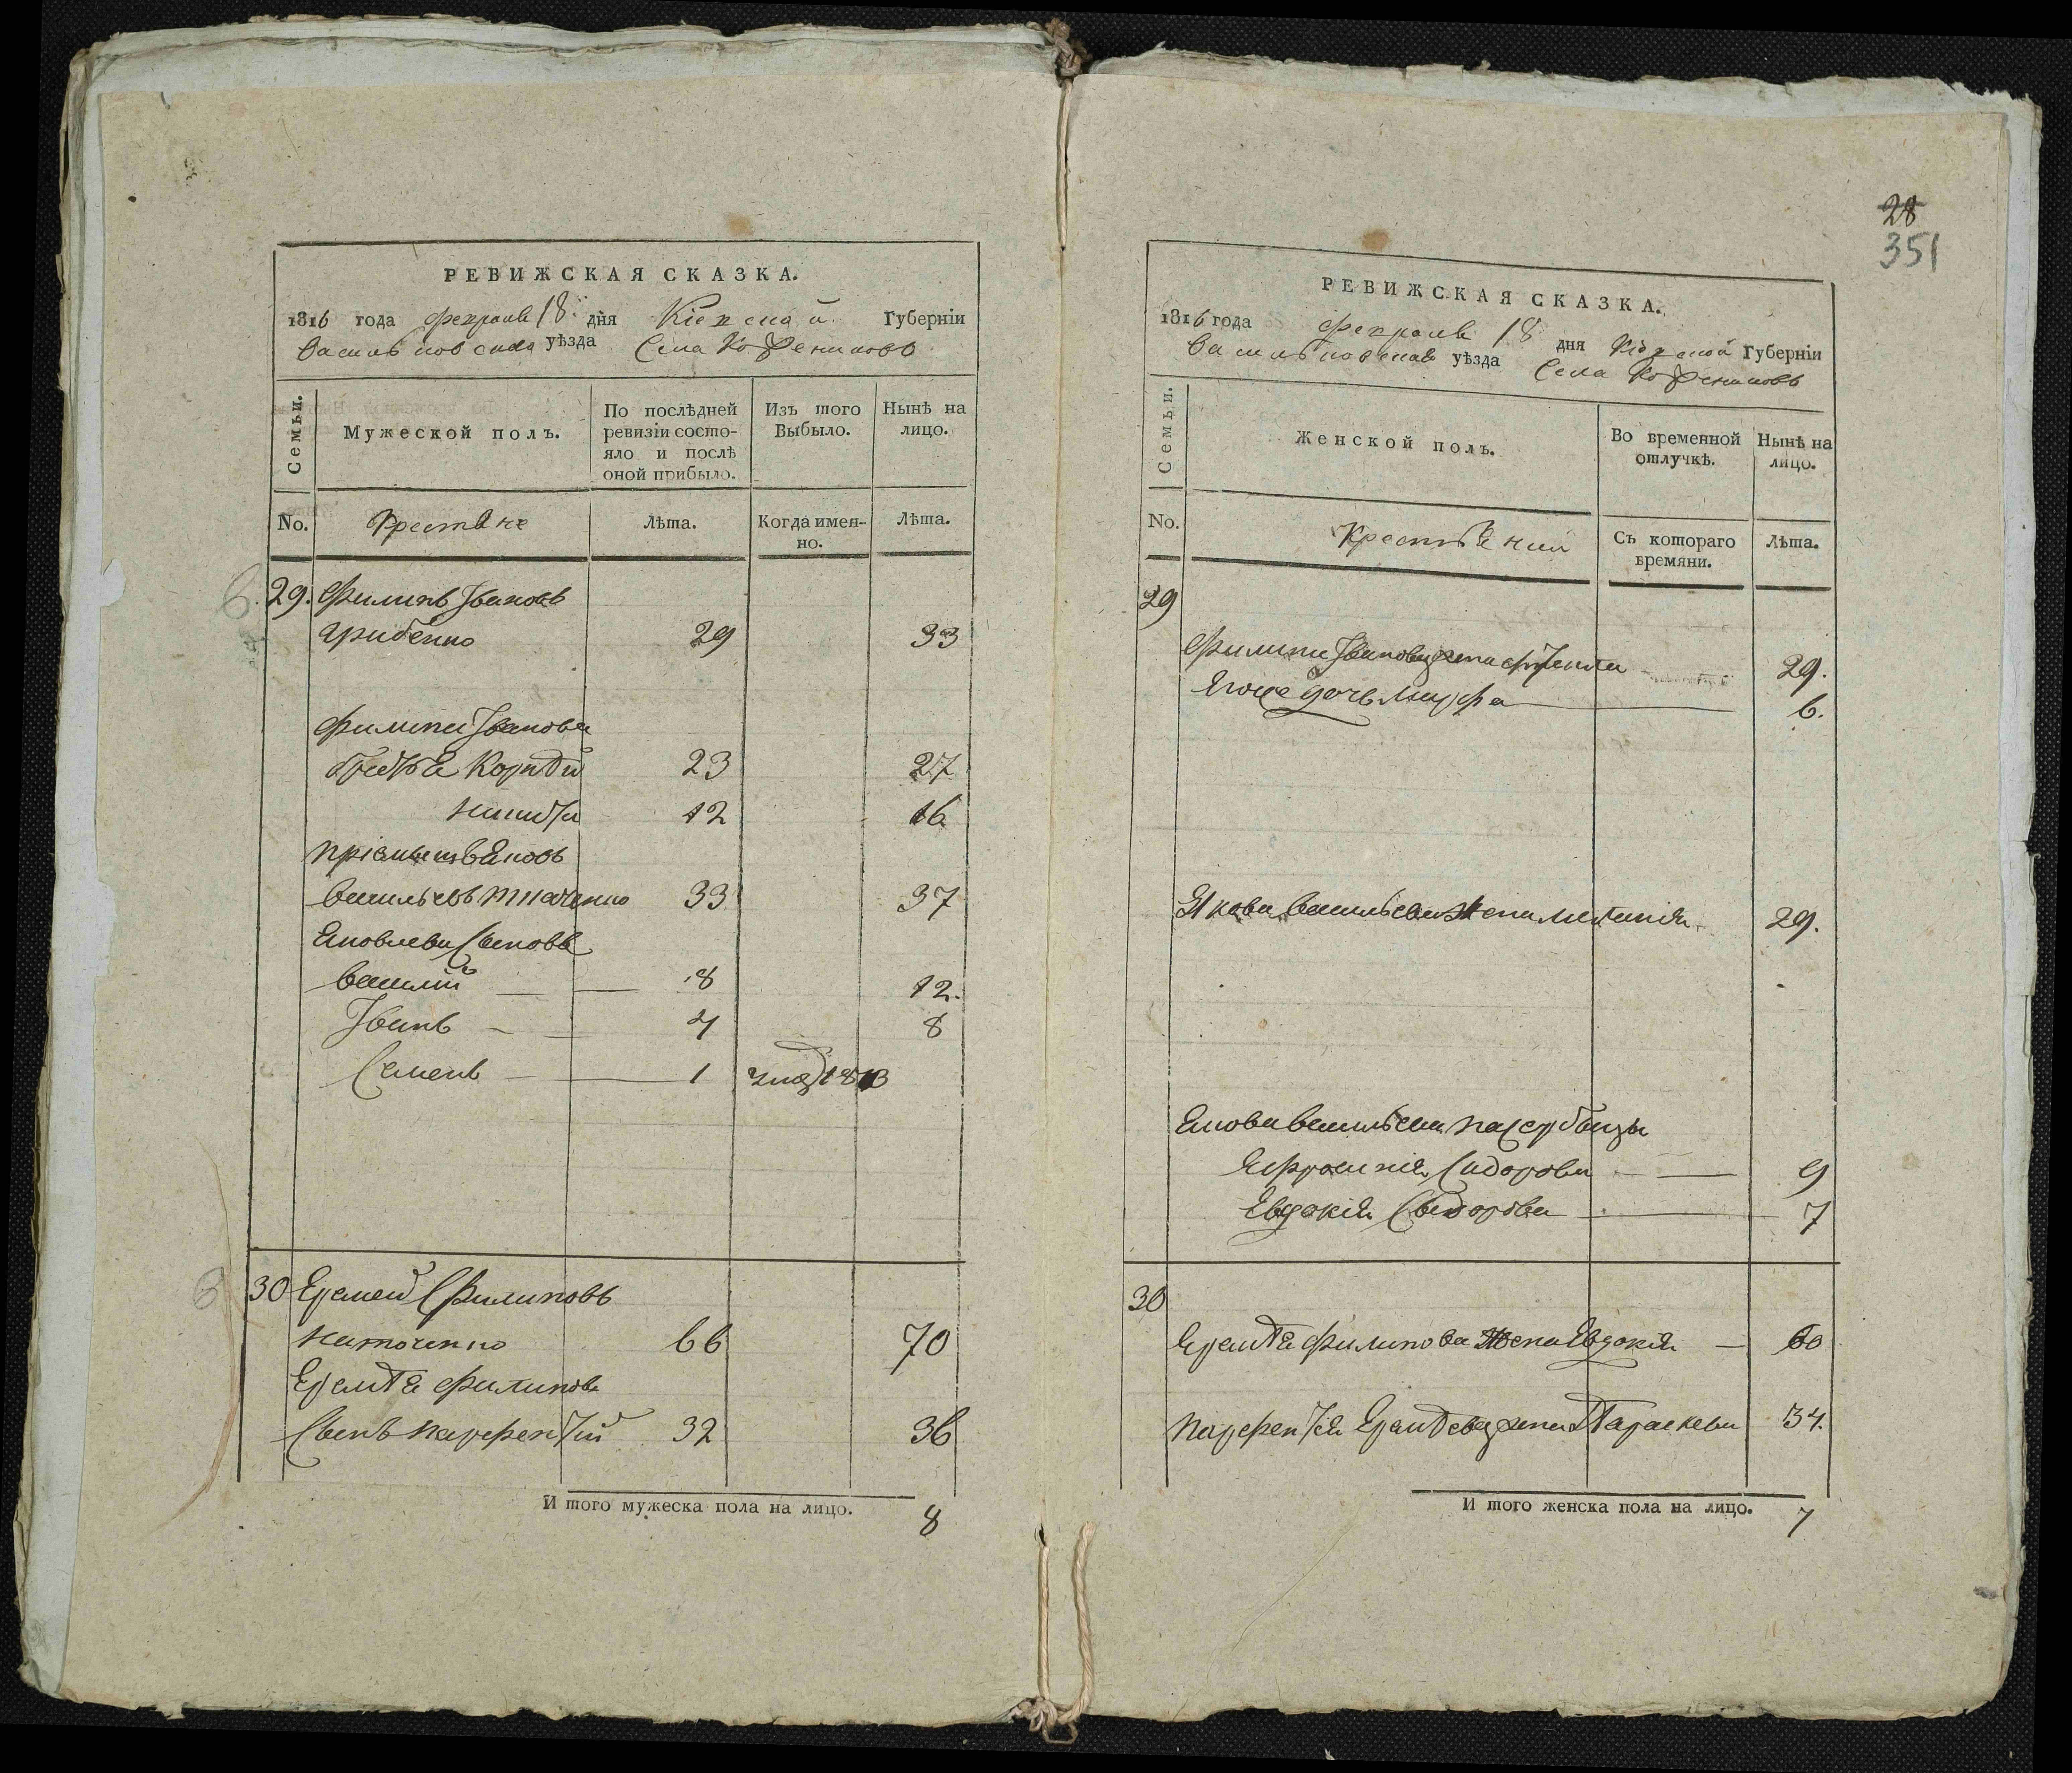 28
351
РЕВИЖСКАЯ СКАЗКА.
1816 года февраля 18 дня Кіевской Губерніи
Васильковскаго уѣзда Села
Семьи.
Мужеской полъ.
По послѣдней ревизіи состо-
яло и послѣ оной прибыло.
Изъ того Выбыло.
Нынѣ на лицо.
No.
Крестяне
Лѣта.
Когда имен-
но.
Лѣта.
29. Филипъ Ивановъ
29 33
Филипа Иванова
братья 23 27
Никита 12 16
Пріемышъ Яковъ
Васильевъ Ткаченко 33 37
Яковлевы Сыновья
Василій 8 12.
Иванъ 4 8
Семенъ 1 1813
30 Еремей Филиповъ
66 70
Еремѣя Филипова
Сынъ Парфентій 32 36
И того мужеска пола на лицо. 8
РЕВИЖСКАЯ СКАЗКА.
1816 года февраля 18 дня Кіевской Губерніи
Васильковскаго уѣзда Села
Семьи.
Женской полъ.
Во временной отлучкѣ.
Нынѣ на лицо.
No.
Съ котораго времяни.
Лѣта.
29
Филипа Иванова жена 29.
Егоже дочь Марфа 6.
Якова Васильева жена Меланія 29.
Якова Васильева
Ефросинія Сидорова 9
Евдокія Сидорова 7
30
Еремѣя Филипова Жена Евдокія 60
Парфентія Еремѣева жена Параскева 34.
И того женска пола на лицо. 7